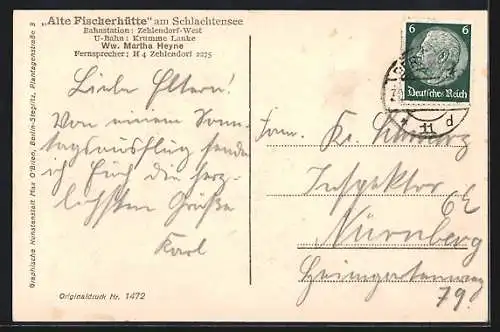 „Alte Fischerhütte" am Schlachtensee
Bahnstation: Zehlendorf-West
U-Bahn: Krumme Lanke
Ww. Martha Heyne
Fernsprecher: H 4 Zehlendorf 2275
Liebe Eltern!
Von einem Sonn-
tagsausflug sende
ich Euch die herz-
lichsten Grüße
Karl
Originaldruck Nr. 1472
Graphische Kunstanstalt Max O'Brien, Berlin-Steglitz, Plantagenstraße 3
6 6
Deutsches Reich
11
d
Fam.
Inspektor
Nürnberg
Heimgartenweg
79.